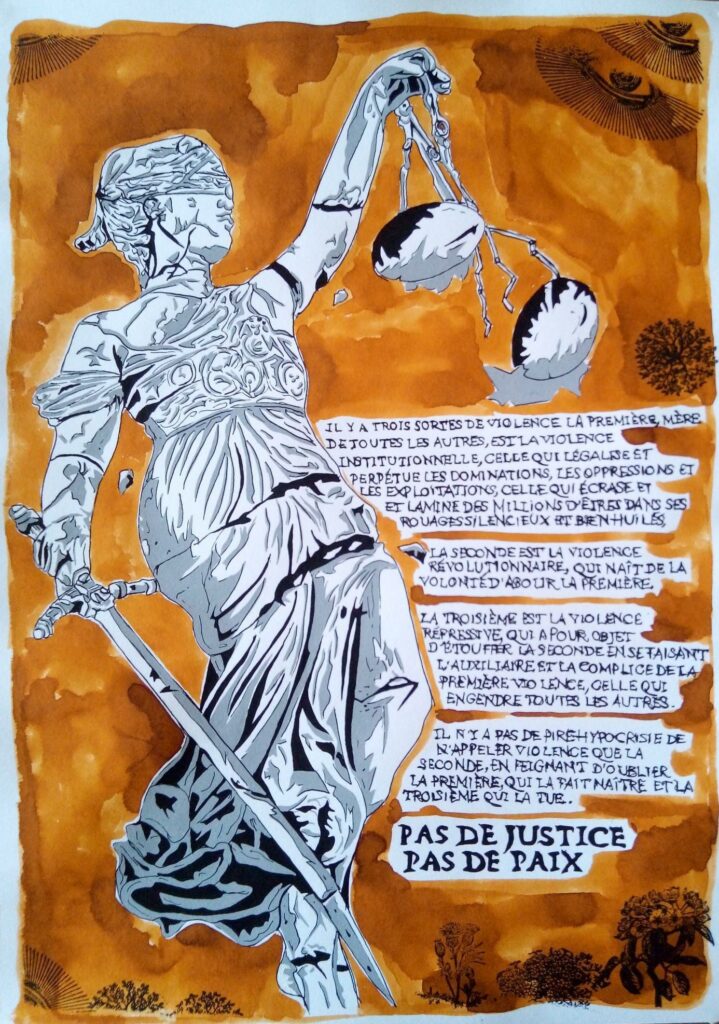 IL Y A TROIS SORTES DE VIOLENCE LA PREMIÈRE, MÈRE
DE TOUTES LES AUTRES, EST LA VIOLENCE
INSTITUTIONNELLE, CELLE QUI LÉGALISE ET
PERPÉTUE LES DOMINATIONS, LES OPPRESSIONS ET
LES EXPLOITATIONS, CELLE QUI ÉCRASE ET
ET LAMINE DES MILLIONS D'ÊTRES DANS SES
ROUAGES SILENCIEUX ET BIEN HUILÉS
LA SECONDE EST LA VIOLENCE
RÉVOLUTIONNAIRE, QUI NAÎT DE LA
VOLONTÉ D'ABOLIR LA PREMIÈRE.
LA TROISIÈME EST LA VIOLENCE
RÉPRESSIVE, QUI A POUR OBJET
D'ÉTOUFFER LA SECONDE EN SE FAISANT
L'AUXILIAIRE ET LA COMPLICE DE LA
PREMIÈRE VIOLENCE, CELLE QUI
ENGENDRE TOUTES LES AUTRES.
IL N'Y A PAS DE PIRE HYPOCRISIE DE
N'APPELER VIOLENCE QUE LA
SECONDE, EN FEIGNANT D'OUBLIER
LA PREMIÈRE, QUI LA FAIT NAÎTRE ET LA
TROISIÈME QUI LA TUE.
PAS DE JUSTICE
PAS DE PAIX